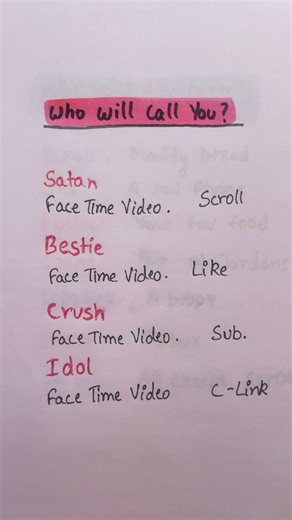 Who will Call You?
Satan
Face Time Video. Scroll
Bestie
Face Time Video. Like
Crush
Face Time Video. Sub.
Idol
Face Time Video C-Link